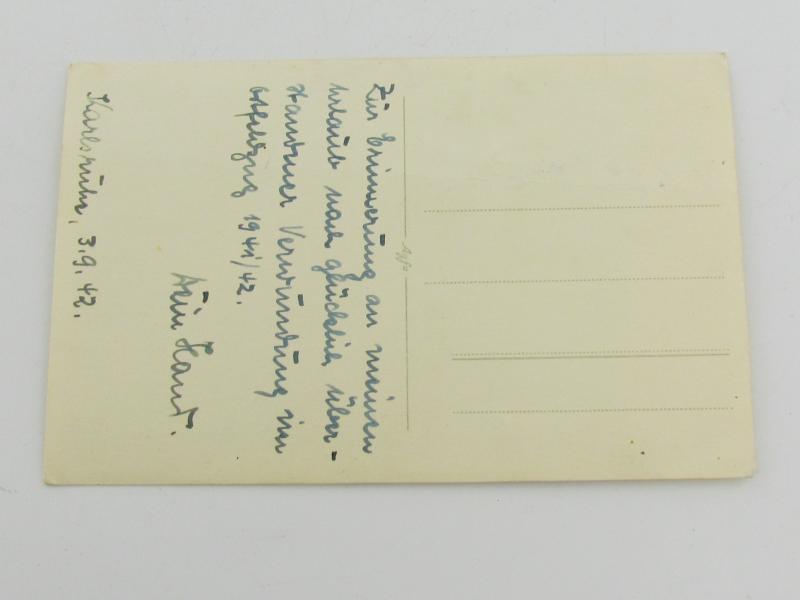 Zur Erinnerung an meinen
Urlaub nach glücklich über-
standener Verwundung im
Ostfeldzug 1941/42.
Dein
Karlsruhe, 3.9.42.